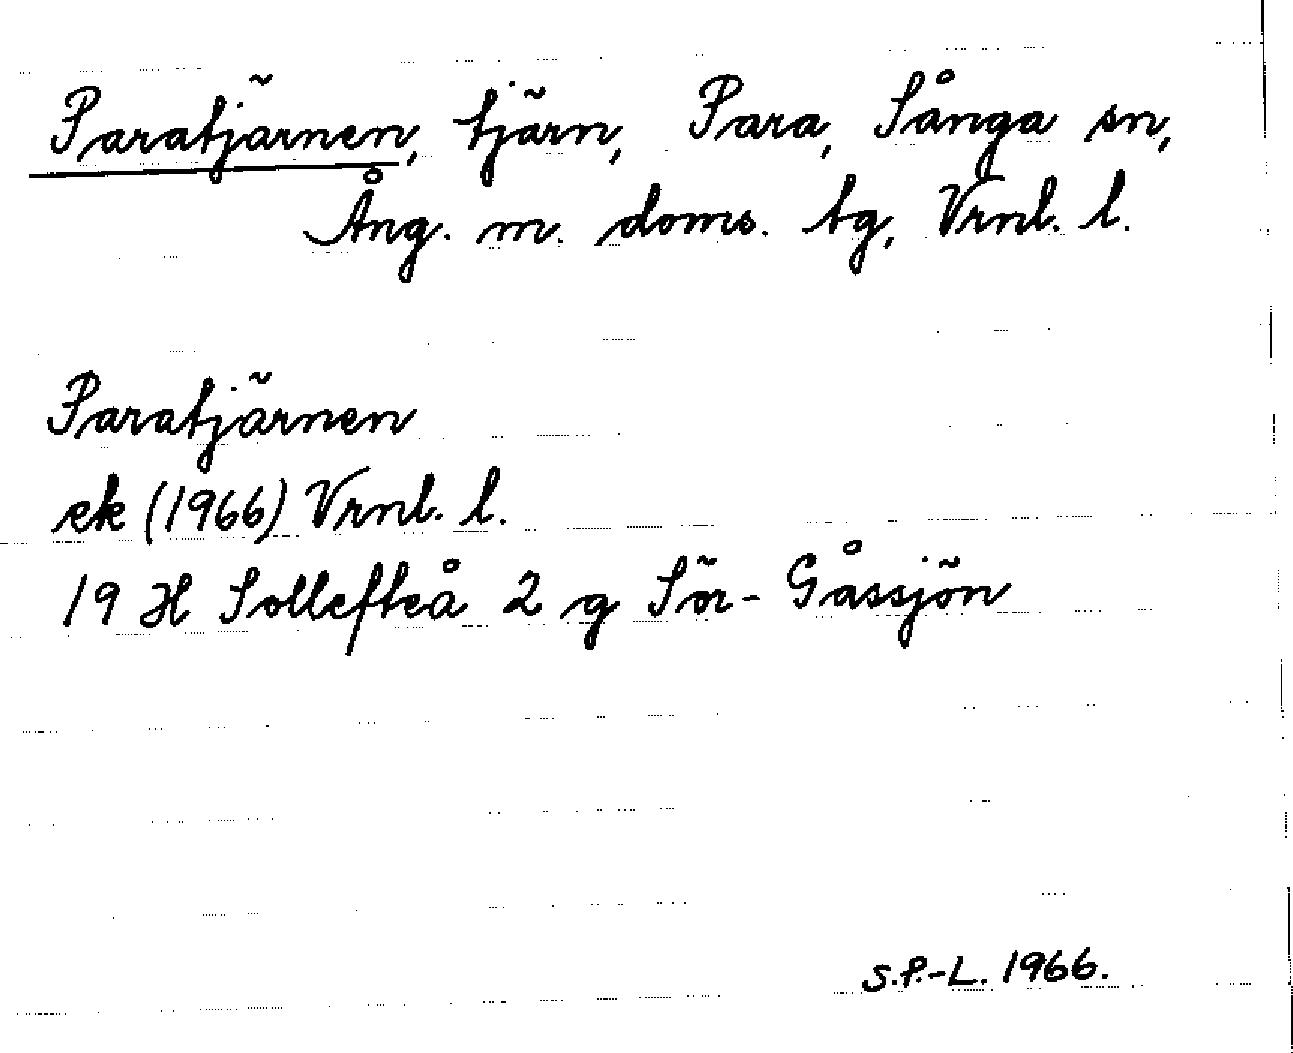 Paratjärnen, tjärn, Para, Sånga sn,
Ång. m. doms. tg, Vrnl. l.
Paratjärnen
ek (1966) Vrnl. l.
19 H Sollefteå 2 g Sör-Gåssjön
S.P.-L. 1966.